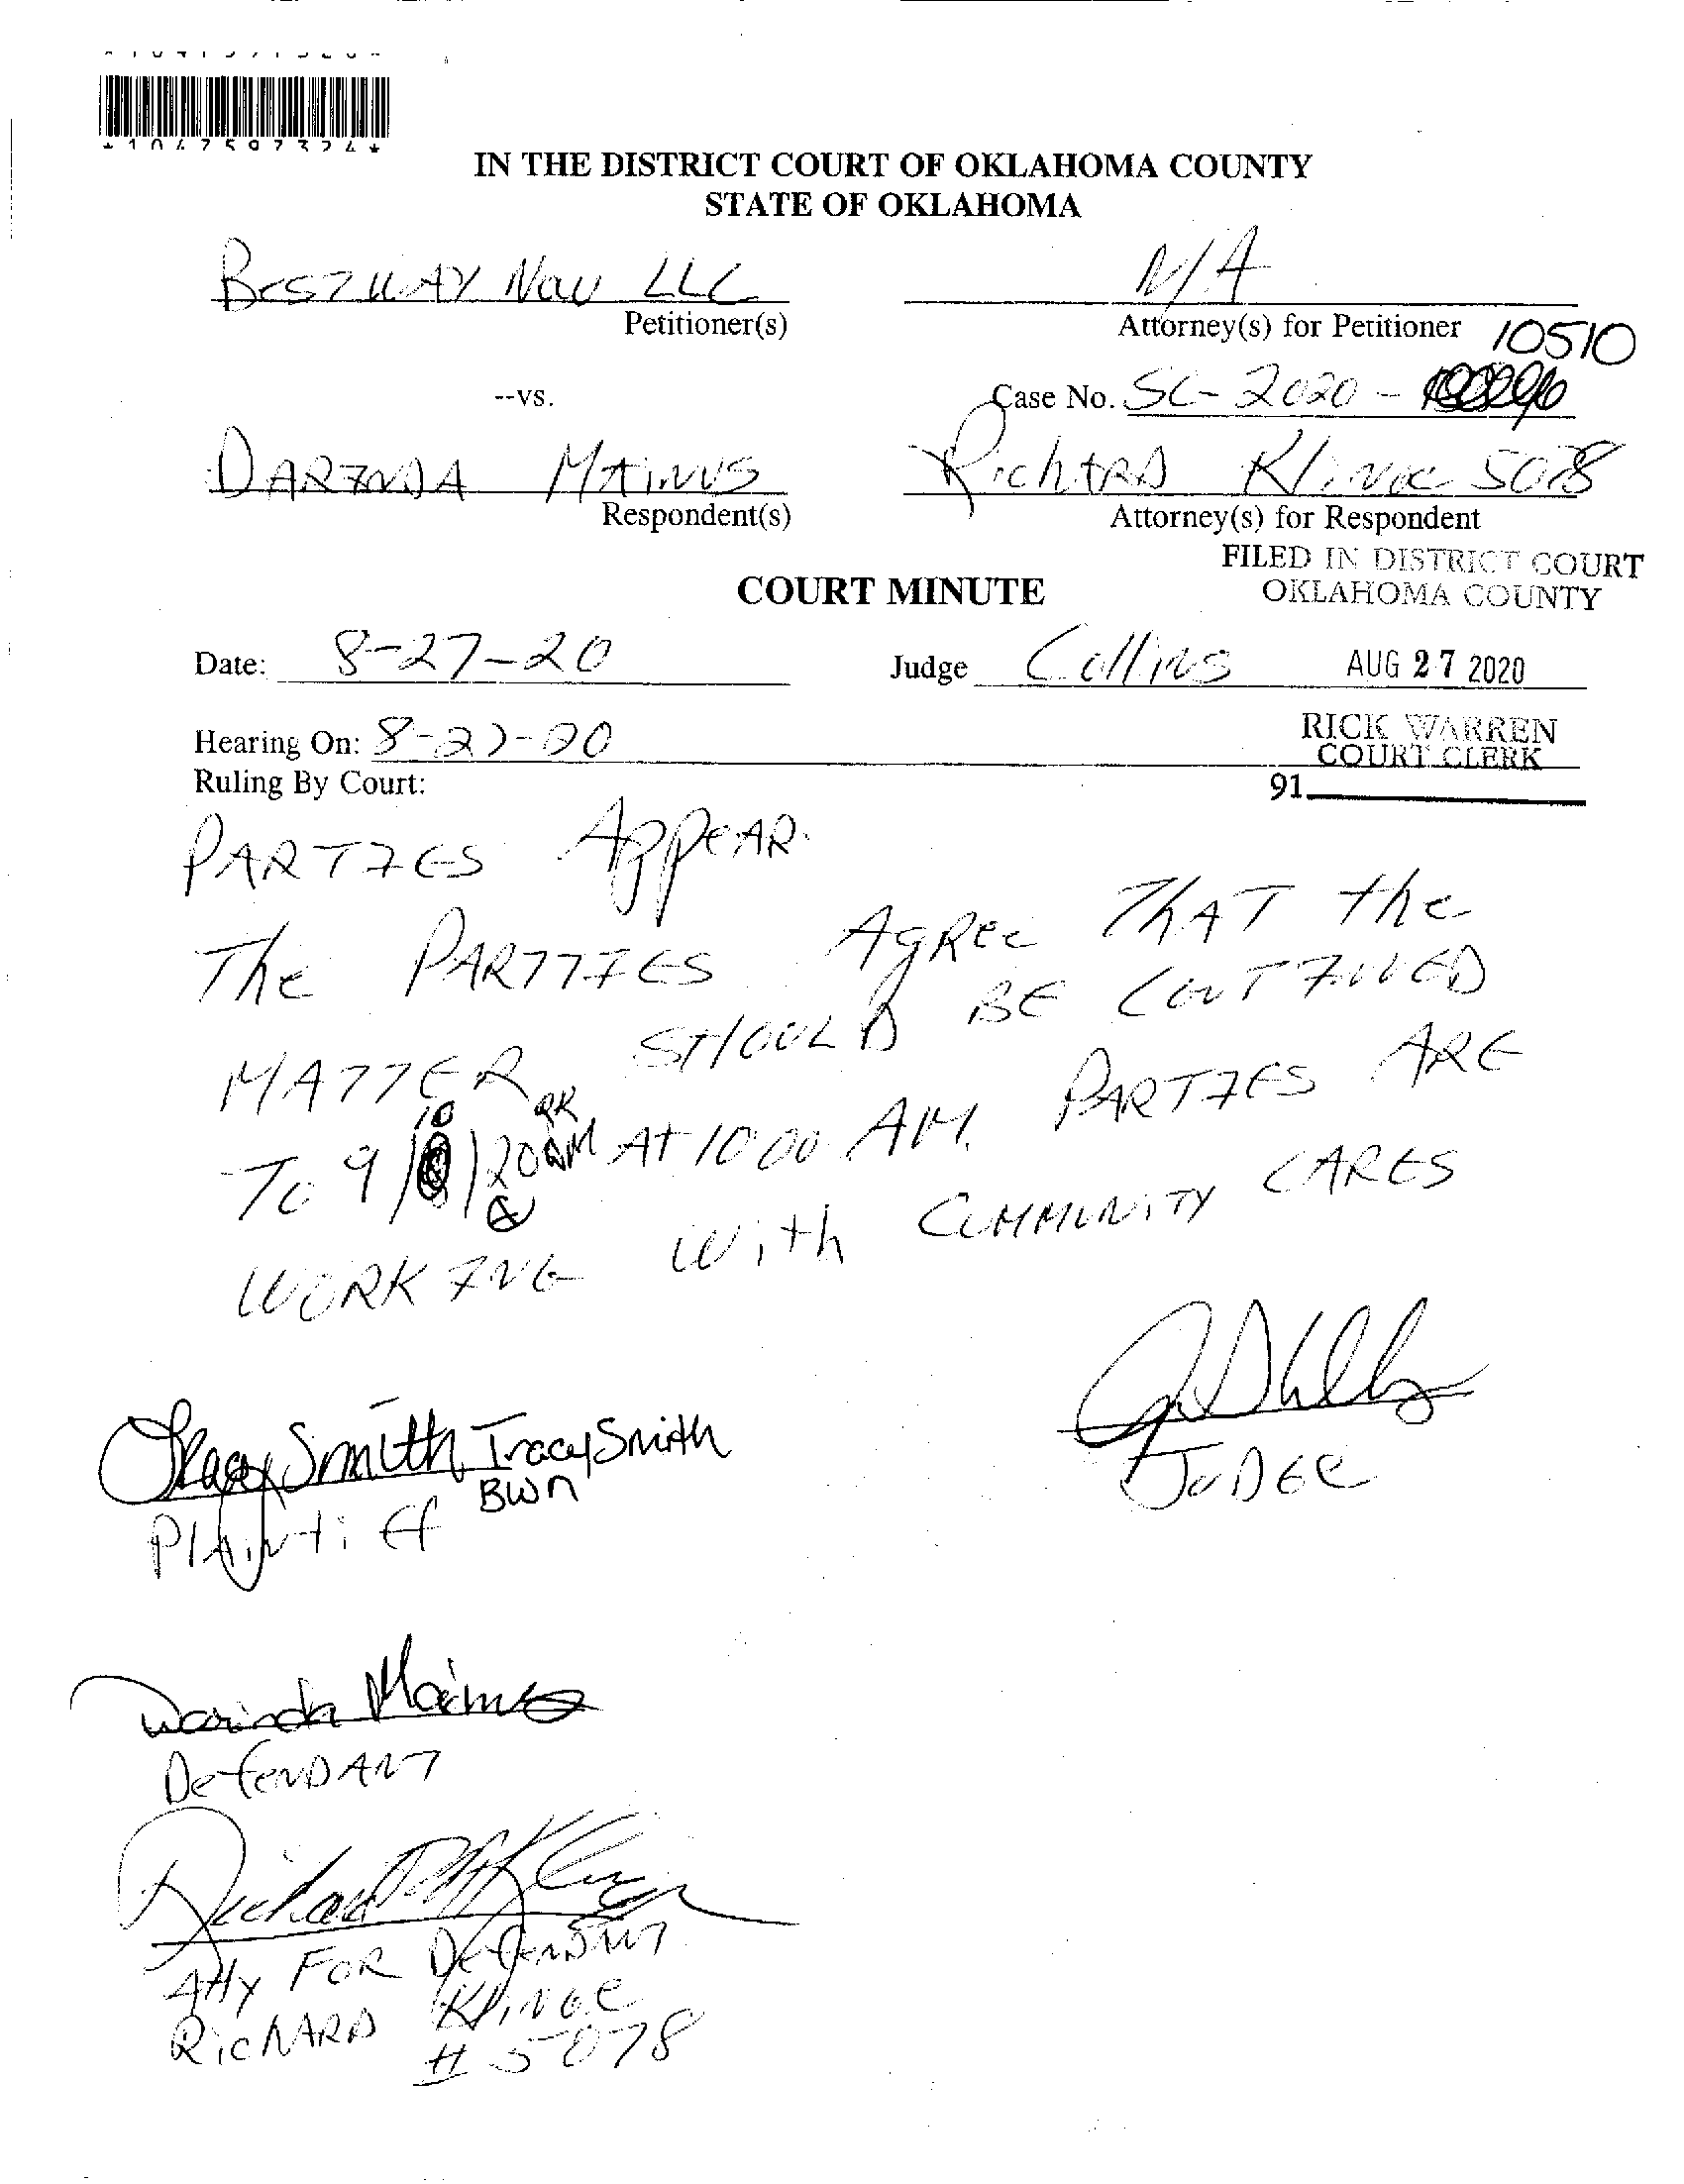 *1047597324*
IN THE DISTRICT COURT OF OKLAHOMA COUNTY
STATE OF OKLAHOMA
BESTWAY NOW LLC
Petitioner(s)
N/A
Attorney(s) for Petitioner
10510
--vs.
Case No. SC-2020-
DARINDA MAINUS
Respondent(s)
RichARD Klinge 5078
Attorney(s) for Respondent
FILED IN DISTRICT COURT
OKLAHOMA COUNTY
COURT MINUTE
Date: 8-27-20
Judge Collins
AUG 27 2020
Hearing On: 8-27-20
RICK WARREN
COURT CLERK
Ruling By Court:
91
PARTIES APPEAR
The PARTTIES AgRee ThAT the
MATTER SHOULD BE CONTINUED
To 9/10/20 At 10 00 AM. PARTIES ARE
WORKING With COMMUNITY CARES
Tracy Smith Tracy Smith
BWN
Plaintiff
JUDGE
Darinda Mainus
DefeNDANT
Richard Klinge
Atty FOR DefenDANT
RicHARD Klinge
# 5078